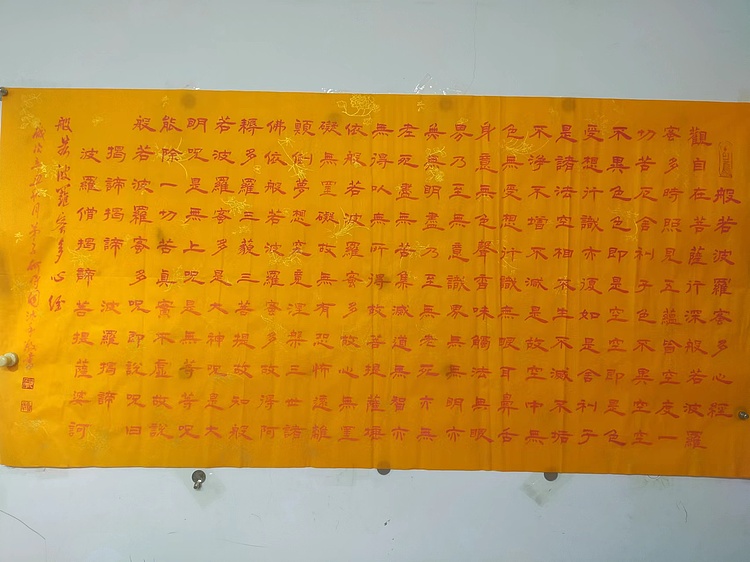 般若波羅蜜多心經
觀自在菩薩行深般若波羅
蜜多時照見五蘊皆空度一
切苦厄舍利子色不異空空
不異色色即是空空即是色
受想行識亦復如是舍利子
是諸法空相不生不滅不垢
不淨不增不減是故空中無
色無受想行識無眼耳鼻舌
身意無色聲香味觸法無眼
界乃至無意識界無無明亦
無無明盡乃至無老死亦無
老死盡無苦集滅道無智亦
無得以無所得故菩提薩埵
依般若波羅蜜多故心無罣
礙無罣礙故無有恐怖遠離
顛倒夢想究竟涅槃三世諸
佛依般若波羅蜜多故得阿
耨多羅三藐三菩提故知般
若波羅蜜多是大神呪是大
明呪是無上呪是無等等呪
能除一切苦真實不虛故說
般若波羅蜜多呪即說呪曰
揭諦揭諦 波羅揭諦
波羅僧揭諦 菩提薩婆訶
般若波羅蜜多心经